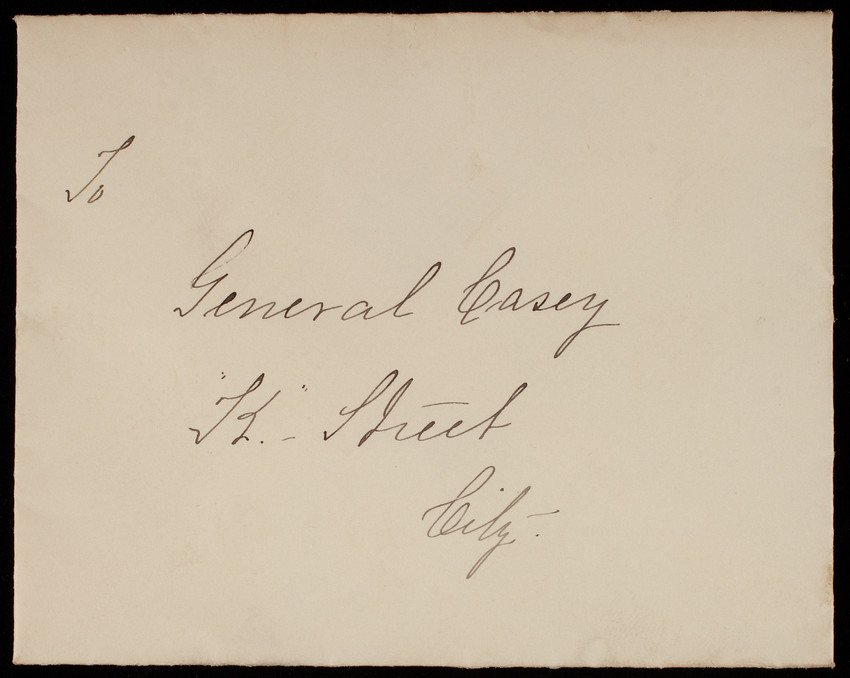 To
General Casey
"K."- Street
City.